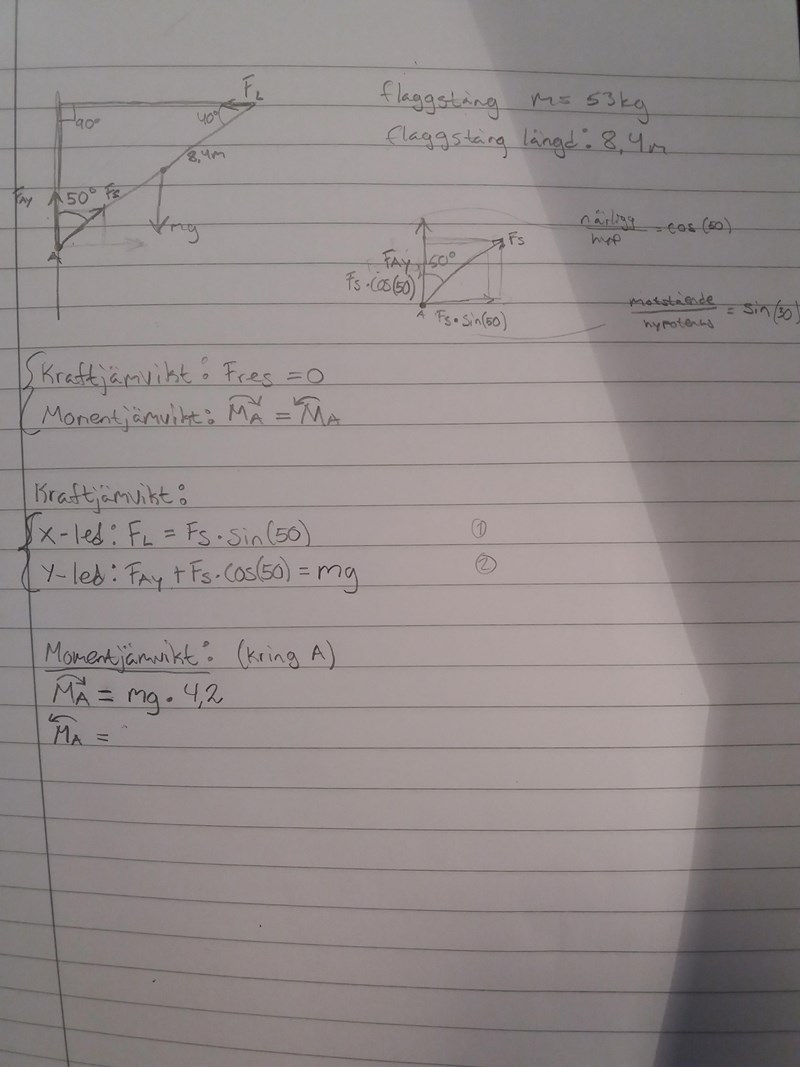 FL
90°
40°
8,4m
FAy
50°
Fs
mg
A
flaggstång m= 53kg
flaggstång längd: 8,4m
Fs
FAy
50°
Fs·cos(50)
A
Fs·sin(50)
närligg/hyp = cos(50)
motstående/hypotenus = sin(50)
Kraftjämvikt: Fres = 0
Momentjämvikt: MA = MA
Kraftjämvikt:
X-led: FL = Fs·sin(50) ①
Y-led: FAy + Fs·cos(50) = mg ②
Momentjämvikt: (kring A)
MA = mg·4,2
MA =